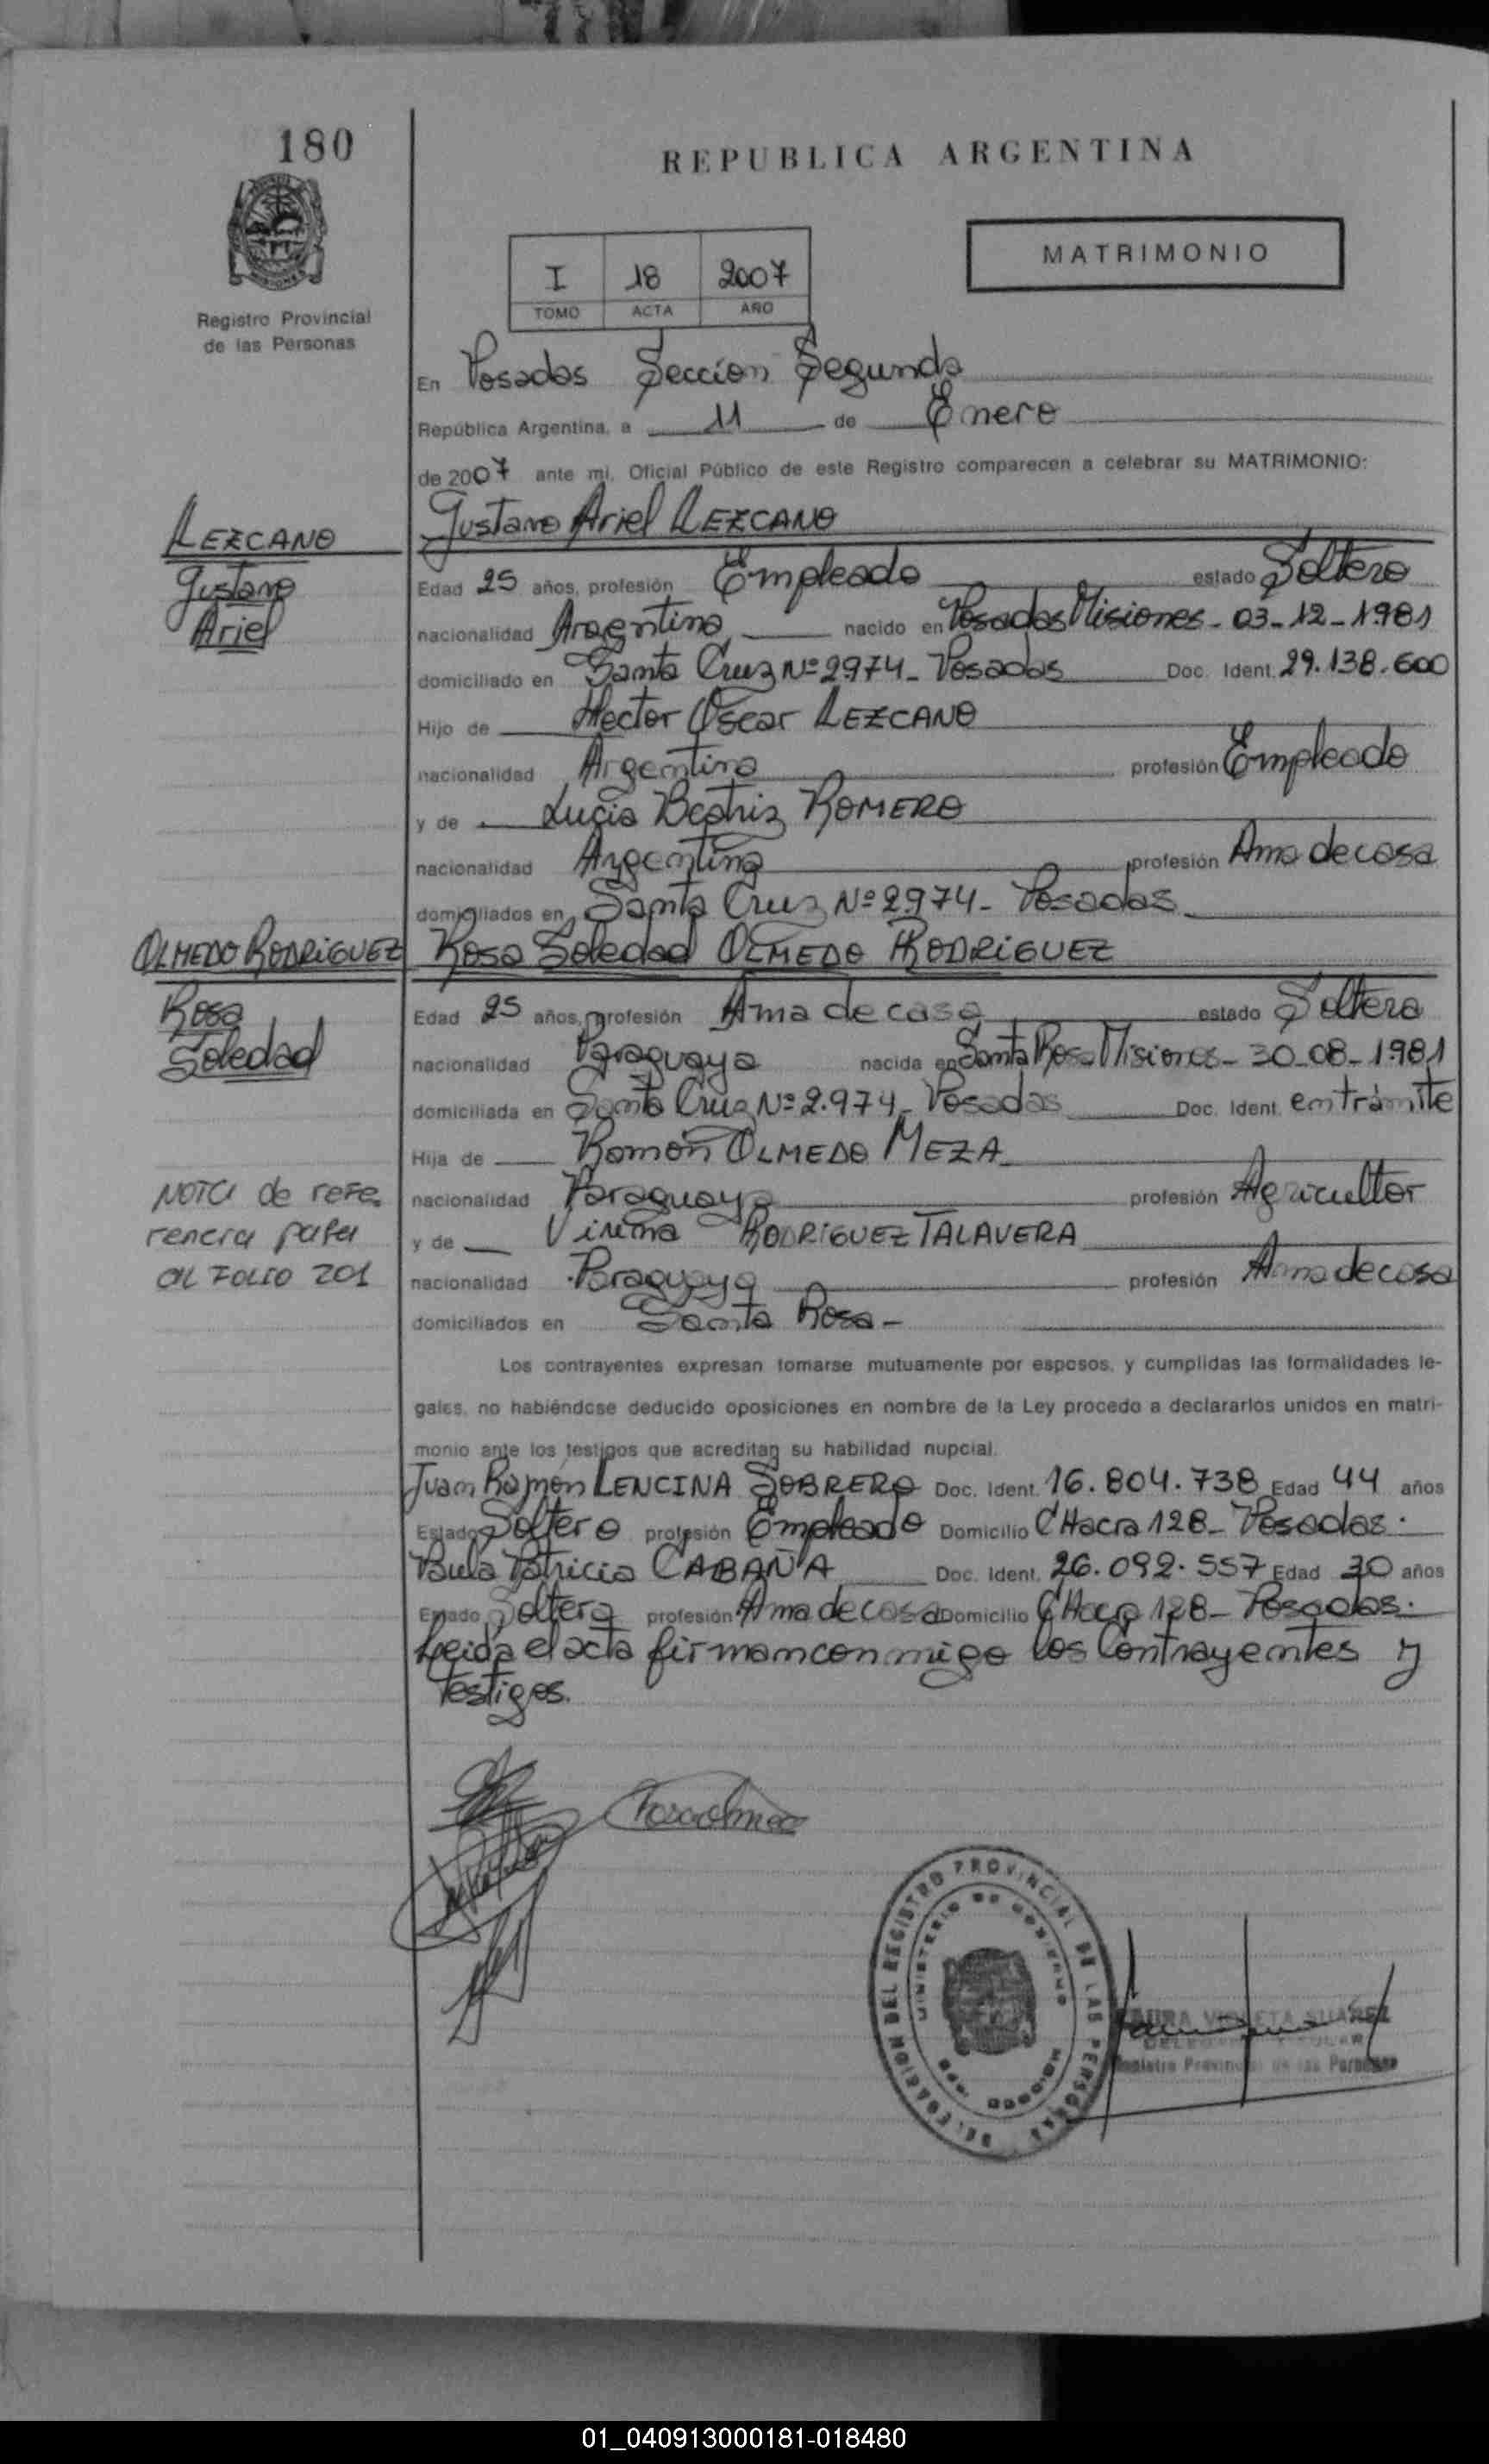 180
REPUBLICA ARGENTINA
MATRIMONIO
I 18 2007
TOMO ACTA AÑO
Registro Provincial
de las Personas
En Posadas Seccion Segunda
República Argentina, a 11 de Enero
de 2007 ante mi, Oficial Público de este Registro comparecen a celebrar su MATRIMONIO:
LEZCANO
Gustavo
Ariel
Gustavo Ariel LEZCANO
Edad 25 años, profesión Empleado estado Soltero
nacionalidad Argentina nacido en Posadas Misiones - 03-12-1981
domiciliado en Santa Cruz Nº 2974 - Posadas Doc. Ident. 29.138.600
Hijo de Hector Oscar LEZCANO
nacionalidad Argentina profesión Empleado
y de Lucia Beatriz ROMERO
nacionalidad Argentina profesión Ama de casa
domiciliados en Santa Cruz Nº 2974 - Posadas
OLMEDO RODRIGUEZ
Rosa
Soledad
Rosa Soledad OLMEDO RODRIGUEZ
Edad 25 años, profesión Ama de casa estado Soltera
nacionalidad Paraguaya nacida en Santa Rosa Misiones - 30-08-1981
domiciliada en Santa Cruz Nº 2.974 - Posadas Doc. Ident. en trámite
Hija de Ramón OLMEDO MEZA
nacionalidad Paraguaya profesión Agricultor
y de Virina RODRIGUEZ TALAVERA
nacionalidad Paraguaya profesión Ama de casa
domiciliados en Santa Rosa -
NOTA de refe
rencia pasa
al FOLIO 201
Los contrayentes expresan tomarse mutuamente por esposos, y cumplidas las formalidades le-
gales, no habiéndose deducido oposiciones en nombre de la Ley procedo a declararlos unidos en matri-
monio ante los testigos que acreditan su habilidad nupcial.
Juan Ramón LENCINA SOBRERO Doc. Ident. 16.804.738 Edad 44 años
Estado Soltero profesión Empleado Domicilio CHacra 128 - Posadas.
Paula Patricia CABAÑA Doc. Ident. 26.092.557 Edad 30 años
Estado Soltera profesión Ama de casa Domicilio CHacra 128 - Posadas.
Leida el acta firman conmigo los Contrayentes y
Testigos.
DELEGACION DEL REGISTRO PROVINCIAL DE LAS PERSONAS
MINISTERIO DE GOBIERNO
LAURA VIOLETA SUAREZ
Registro Provincial de las Personas
01_040913000181-018480